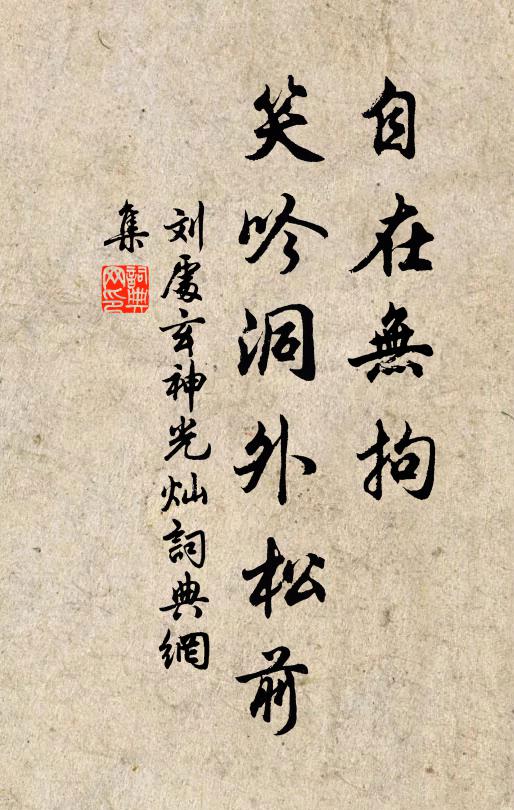 自在無拘
笑吟洞外松前
刘處玄神光灿詞典網
集
詞典
网印